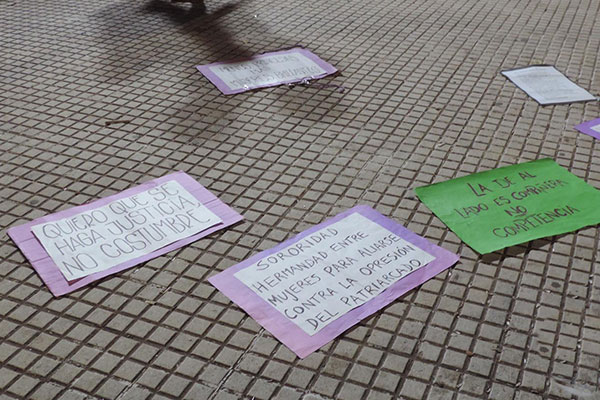 LA DE AL
LADO ES COMPAÑERA
NO
COMPITENCIA
QUIERO QUE SE
HAGA JUSTICIA
NO COSTUMBRE
SORORIDAD
HERMANDAD ENTRE
MUJERES PARA ALIARSE
CONTRA LA OPRESIÓN
DEL PATRIARCADO